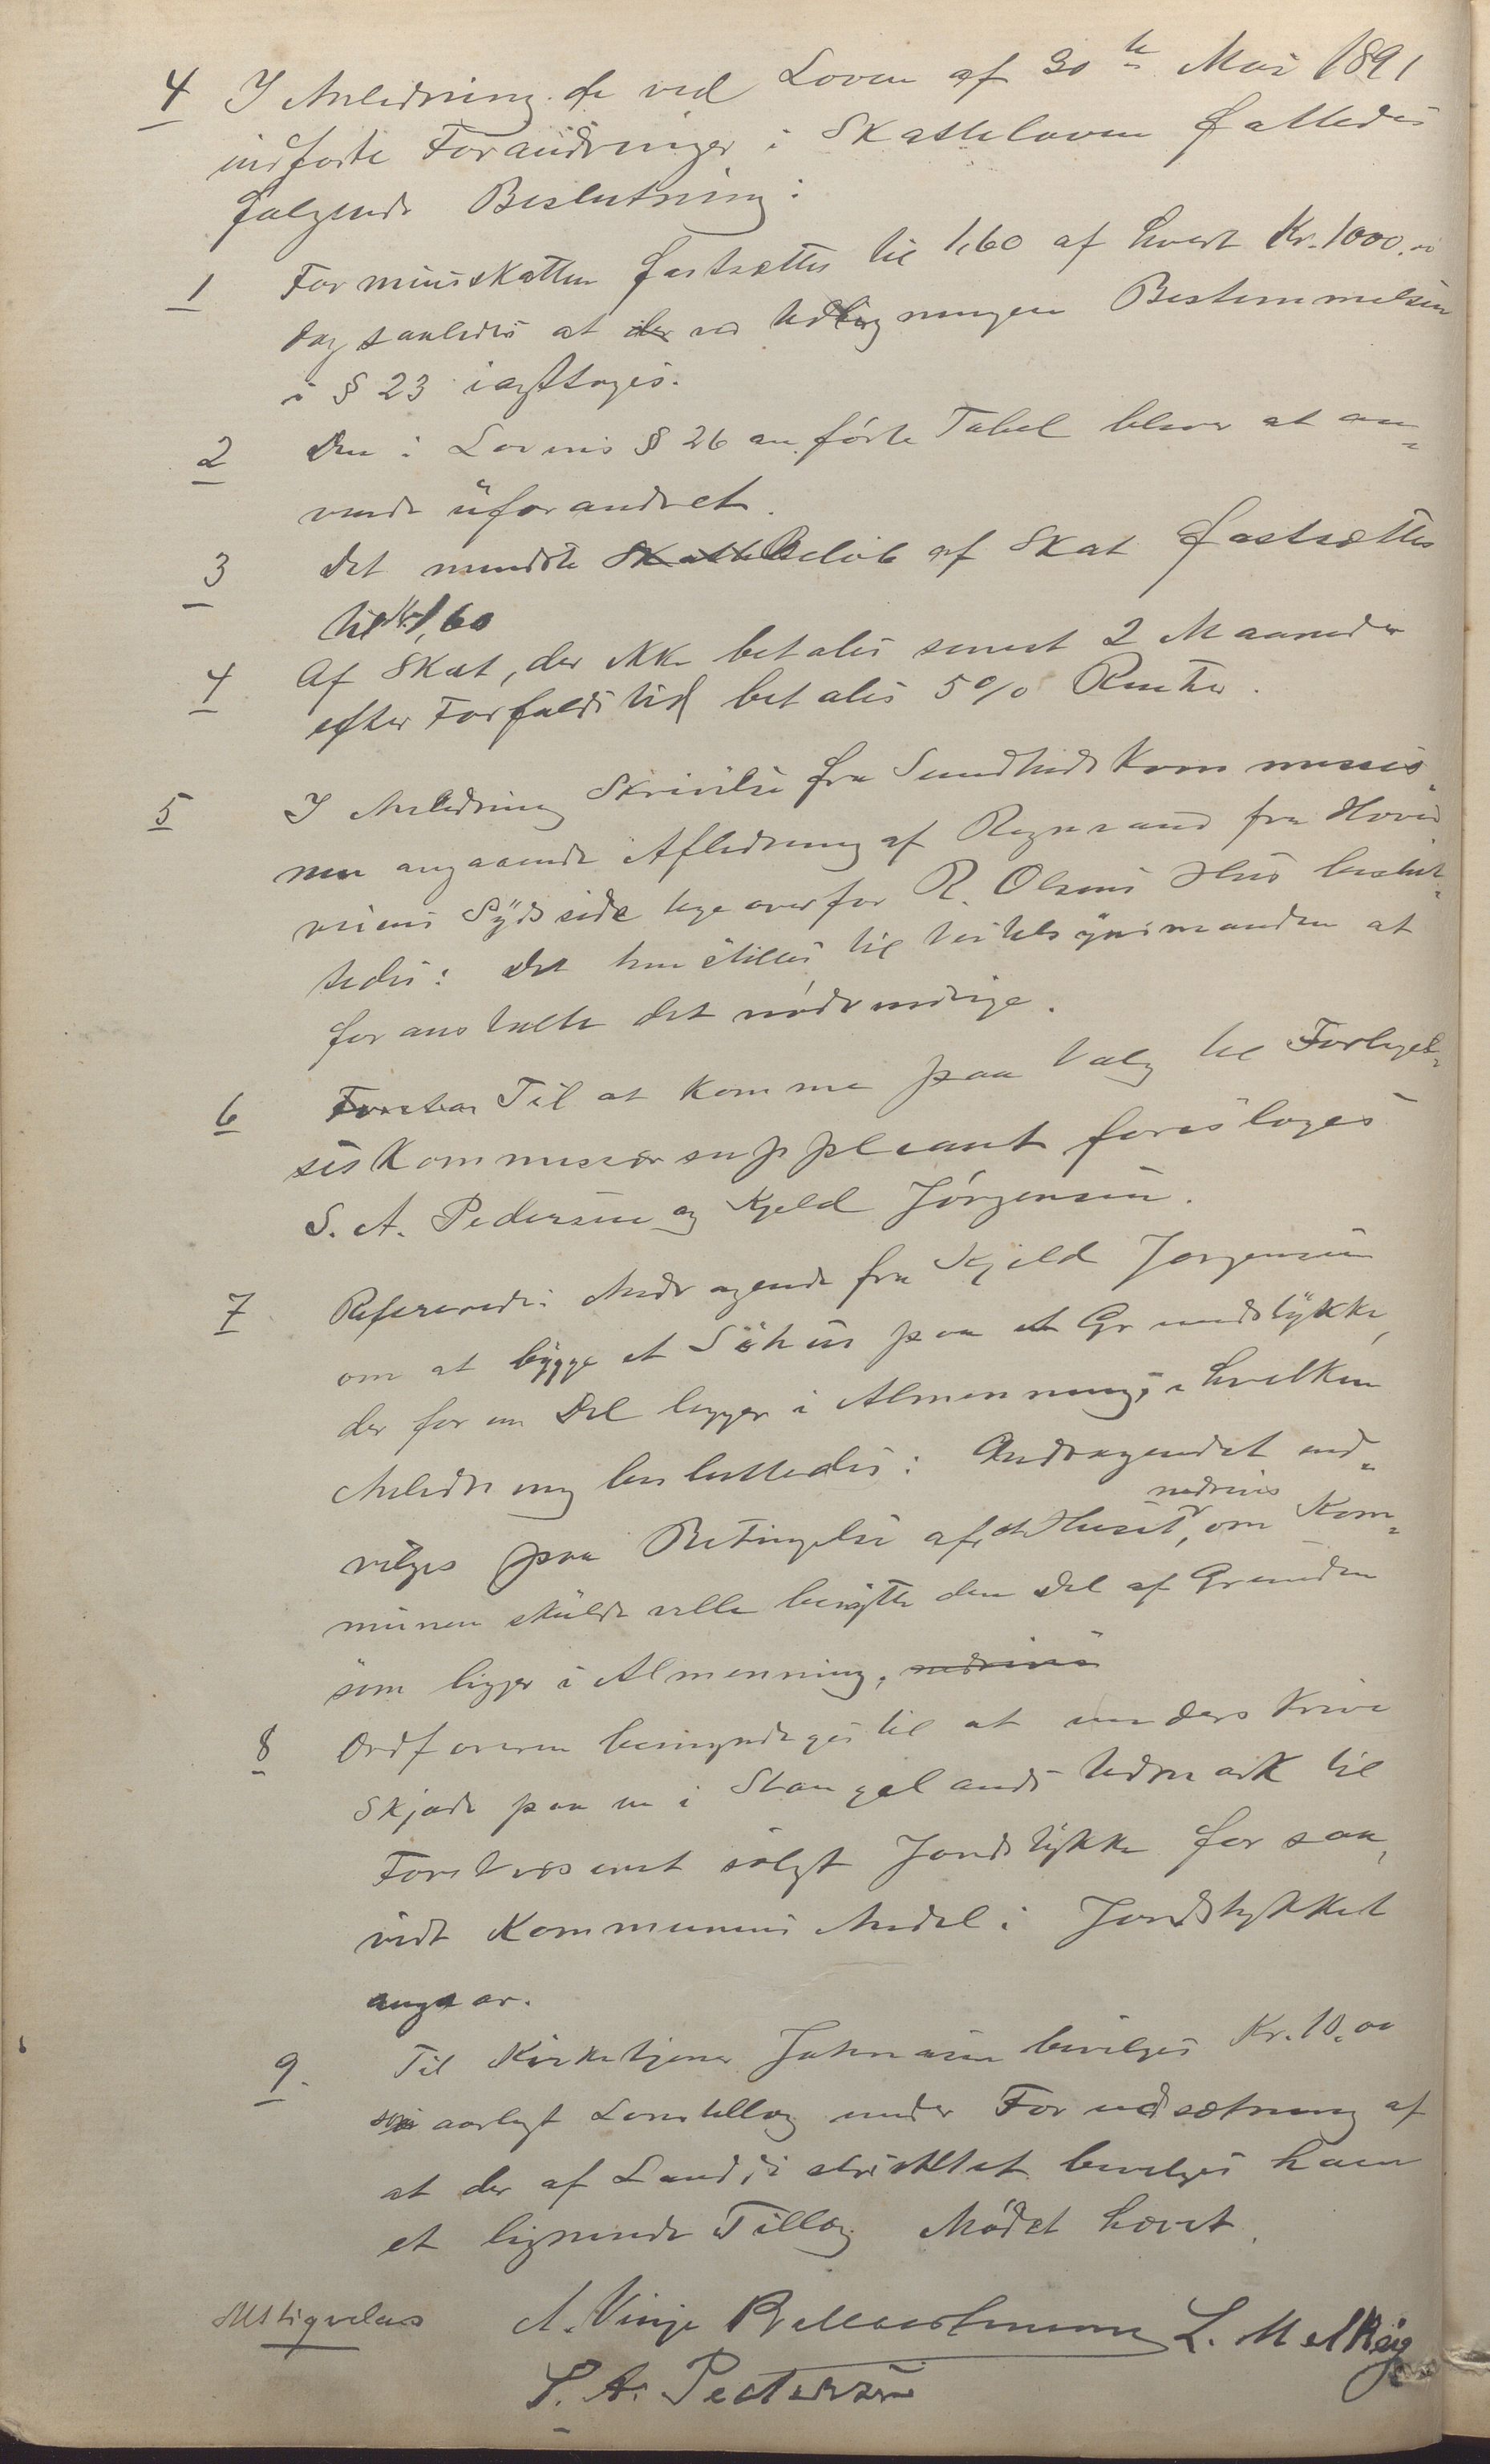 4 I Anledning de ved Loven af 30te Mai 1891
indførte Forandringer i Skatteloven fattedes
følgende Beslutning:
1 Formuesskatten fastsættes til 1,60 af hvert Kr. 1000,00
dog saaledes at der ved Udligningen Bestemmelsen
i § 23 iagttages.
2 Den i Lovens § 26 anførte Tabel bliver at an-
vende uforandret.
3 Det mindste Skatte Beløb af Skat fastsættes
til Kr 1,60
4 Af Skat, der ikke betales senest 2 Maaneder
efter Forfaldstid betales 5% Renter.
5 I Anledning Skrivelse fra Sundhedskommissio-
nen angaaende Afledning af Regnvand fra Hoved
veiens Sydside ligeoverfor R. Olsens Hus beslut-
tedes: Det henstilles til Veitilsynsmanden at
foranstalte det nødvendige.
6 Forstan Til at komme paa Valg til Forligel-
ses Kommissærsuppleant foresloges
S. A. Pedersen og Kjeld Jørgensen.
7 Refereredes Andragende fra Kjeld Jørgensen
om at bygge et Søhus paa et Grundstykke,
der for en Del ligger i Almenning, i hvilken
Anledning besluttedes: Andragendet ind-
vilges paa Betingelse af, at Huset nedrives, om Kom-
munen skulde ville benytte den Del af Grunden
som ligger i Almenning, nedrives
8 Ordføreren bemyndiges til at underskrive
Skjøde paa en i Stangelands Udmark til
Forstvæsenet solgt Jordstykke for saa-
vidt Kommunens Andel i Jordstykket
angaar.
9. Til Kirketjener Johnsen bevilges Kr. 10,00
som aarligt Lønstillæg under Forudsætning af
at der af Landdistriktet bevilges ham
et lignende Tillæg Mødet hævet.
A. Vinje L. Melkeig
S. A. Pedersen